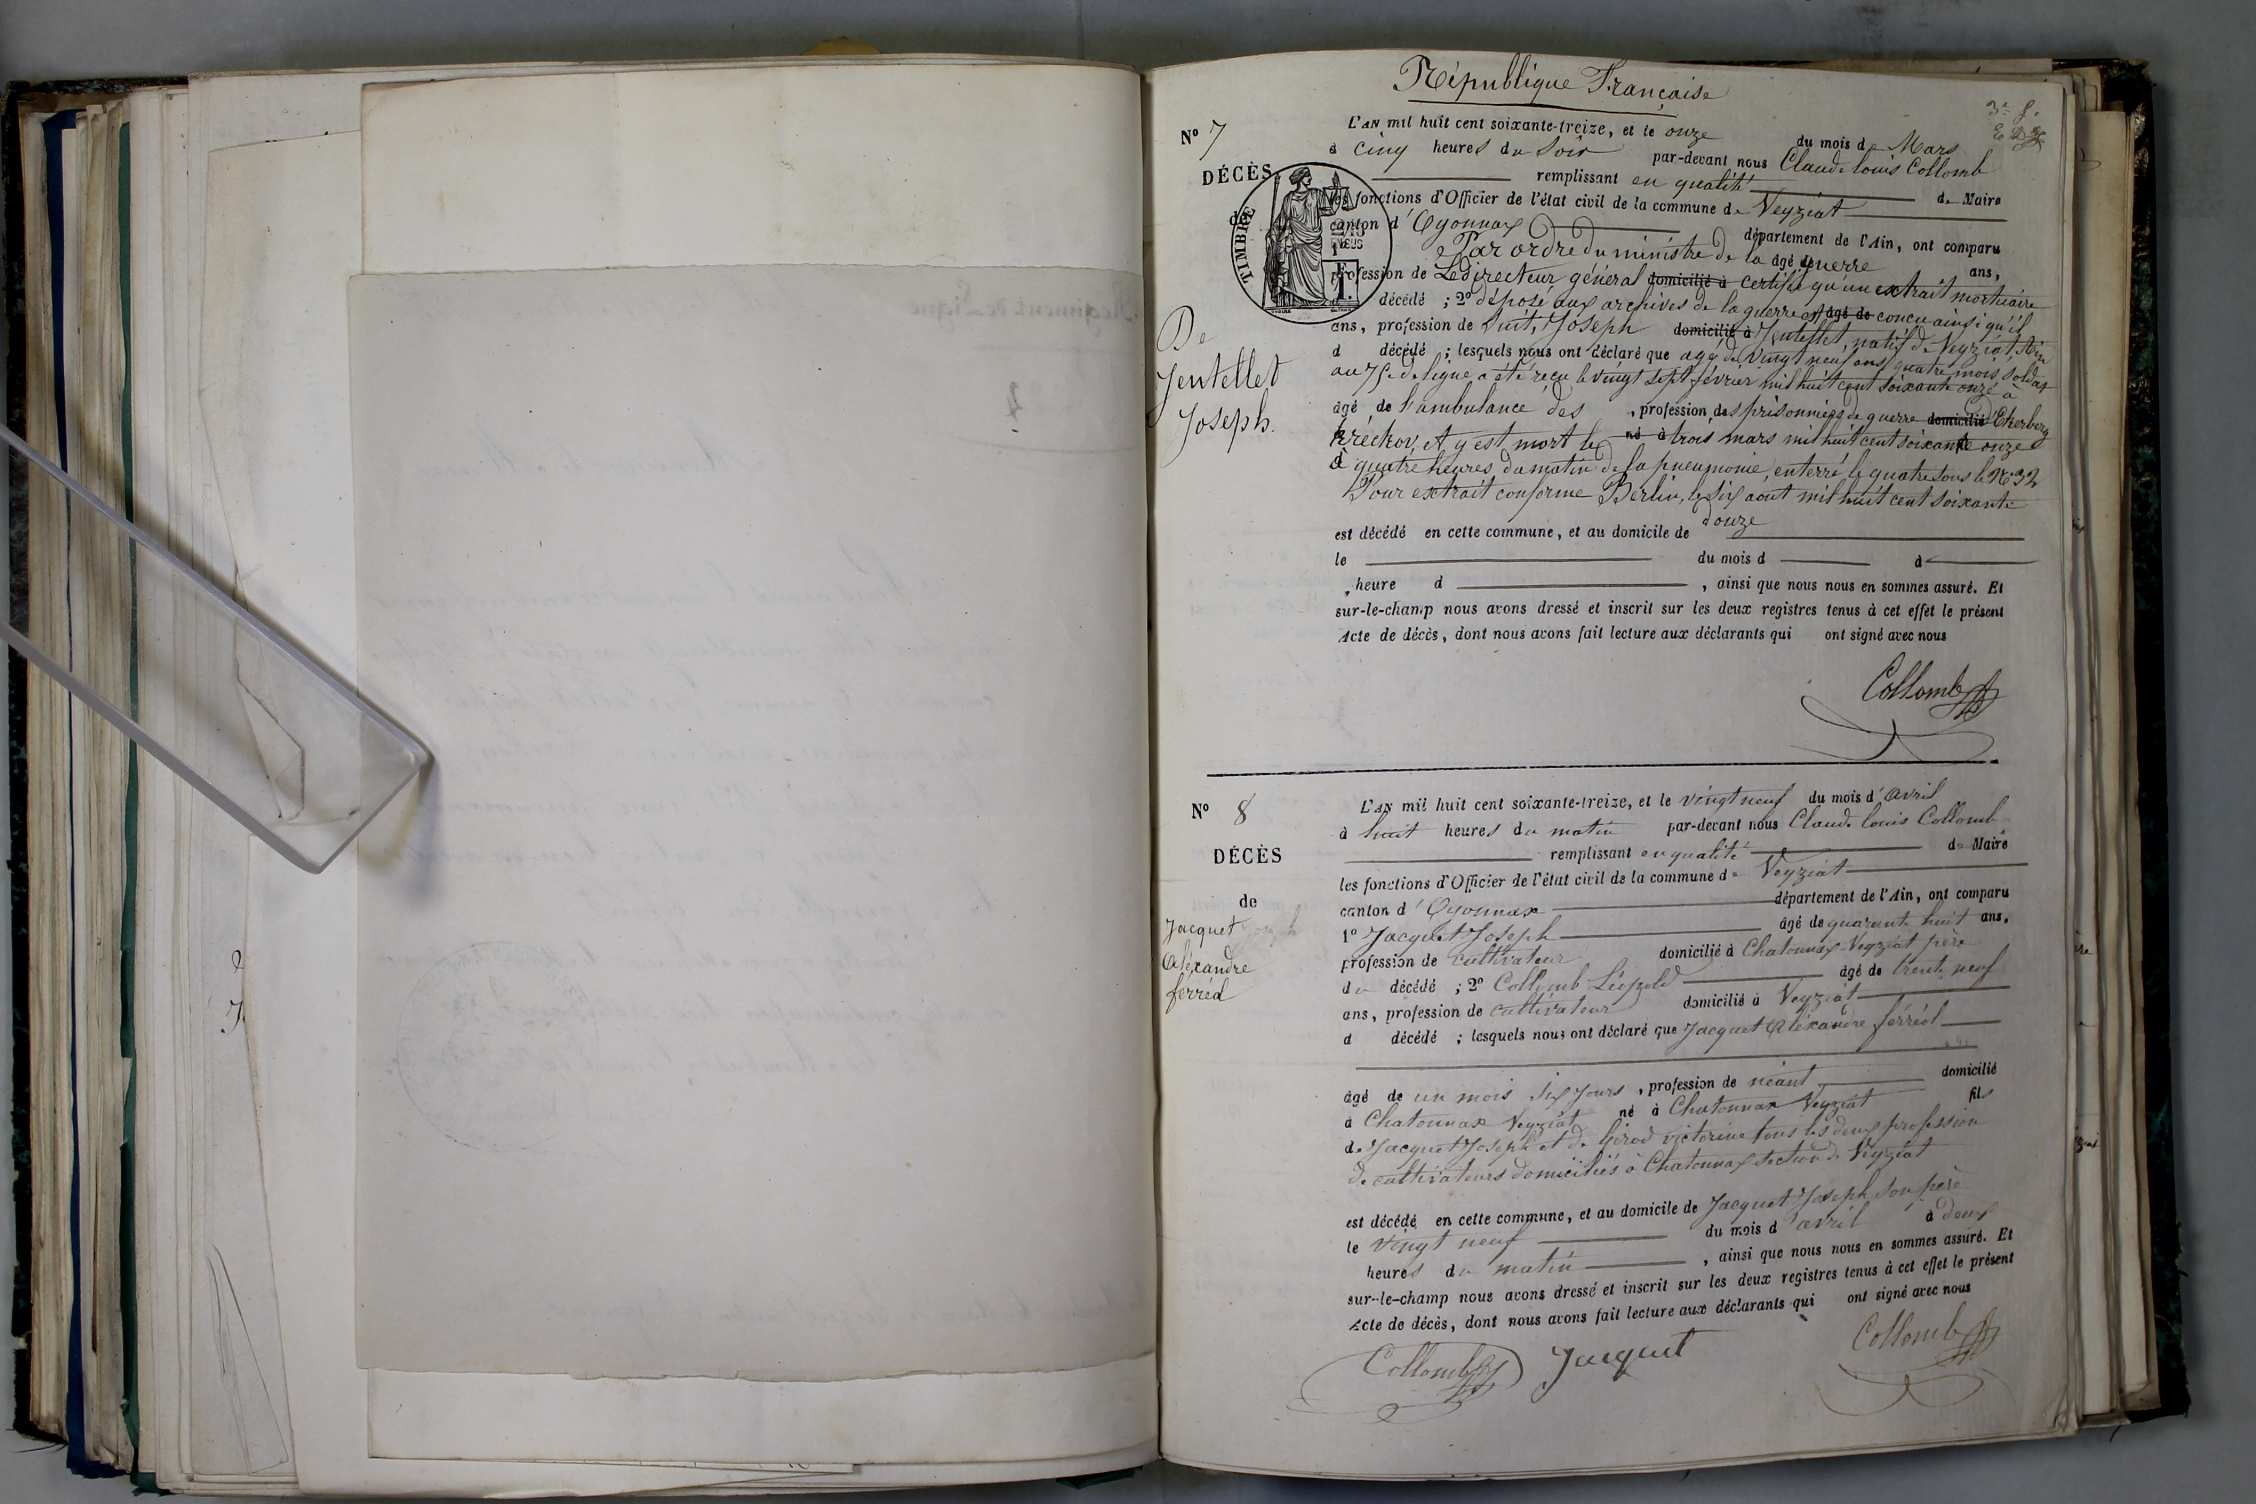 République Française
3e f.
No 7
L'AN mil huit cent soixante-treize, et le onze du mois de Mars
à cinq heures du Soir par-devant nous Claude louis Collomb
DÉCÈS
remplissant en qualité de Maire
les fonctions d'Officier de l'état civil de la commune de Veyziat
TIMBRE
canton d'Oyonnax département de l'Ain, ont comparu
Par ordre du ministre de la guerre âgé de ans,
profession de Le directeur général domicilié à certifie qu'un extrait mortuaire
décédé ; 2o déposé aux archives de la guerre est âgé de concu ainsi qu'il
ans, profession de Suit, Joseph domicilié à Jentellet, natif de Veyziat, Ain
d décédé ; lesquels nous ont déclaré que agé de vingt neuf ans quatre mois, soldat
au 75e de ligne a été reçu le vingt sept février mil huit cent soixante onze à
De
Jentellet
Joseph.
âgé de l'ambulance des , profession des prisonniers de guerre domicilié d'Ekerberg
Kréckov, Et y est mort le né à trois mars mil huit cent soixante onze
à quatre heures du matin de la pneumonie, enterré le quatre sous le No 32
Pour extrait conforme Berlin, le six août mil huit cent soixante
douze
est décédé en cette commune, et au domicile de
le du mois d à
heure d , ainsi que nous nous en sommes assuré. Et
sur-le-champ nous avons dressé et inscrit sur les deux registres tenus à cet effet le présent
Acte de décès, dont nous avons fait lecture aux déclarants qui ont signé avec nous
Collomb
No 8
L'AN mil huit cent soixante-treize, et le vingt neuf du mois d'avril
à huit heures du matin par-devant nous Claude louis Collomb
DÉCÈS
remplissant en qualité de Maire
les fonctions d'Officier de l'état civil de la commune de Veyziat
de
canton d'Oyonnax département de l'Ain, ont comparu
Jacquet
Aléxandre
ferréol
1o Jacquet Joseph âgé de quarante huit ans,
profession de cultivateur domicilié à Chatonnax-Veyziat père
du décédé ; 2o Collomb Léopold âgé de trente neuf
ans, profession de cultivateur domicilié à Veyziat
d décédé ; lesquels nous ont déclaré que Jacquet Aléxandre férréol
âgé de un mois six jours , profession de néant domicilié
à Chatonnax Veyziat né à Chatonnax Veyziat fils
de Jacquet Joseph et de Girod victorine tous les deux profession
de cultivateurs domiciliés à Chatonnax section de Veyziat
est décédé en cette commune, et au domicile de Jacquet Joseph son père
le vingt neuf du mois d'avril à deux
heures du matin , ainsi que nous nous en sommes assuré. Et
sur-le-champ nous avons dressé et inscrit sur les deux registres tenus à cet effet le présent
Acte de décès, dont nous avons fait lecture aux déclarants qui ont signé avec nous
Collomb Jacquet Collomb